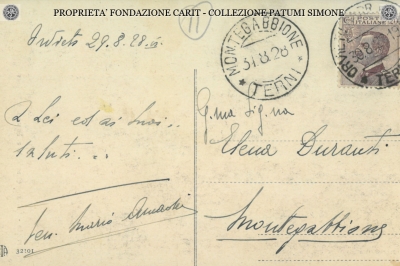 PROPRIETA' FONDAZIONE CARIT - COLLEZIONE PATUMI SIMONE
11
29.8.28
MONTEGABBIONE
31.8.28
(TERNI)
POSTE
ITALIANE
A Lei ed ai suoi..
saluti...
Ten. Mario
G.ma Sig.na
Elena Duranti
Montegabbione
33101